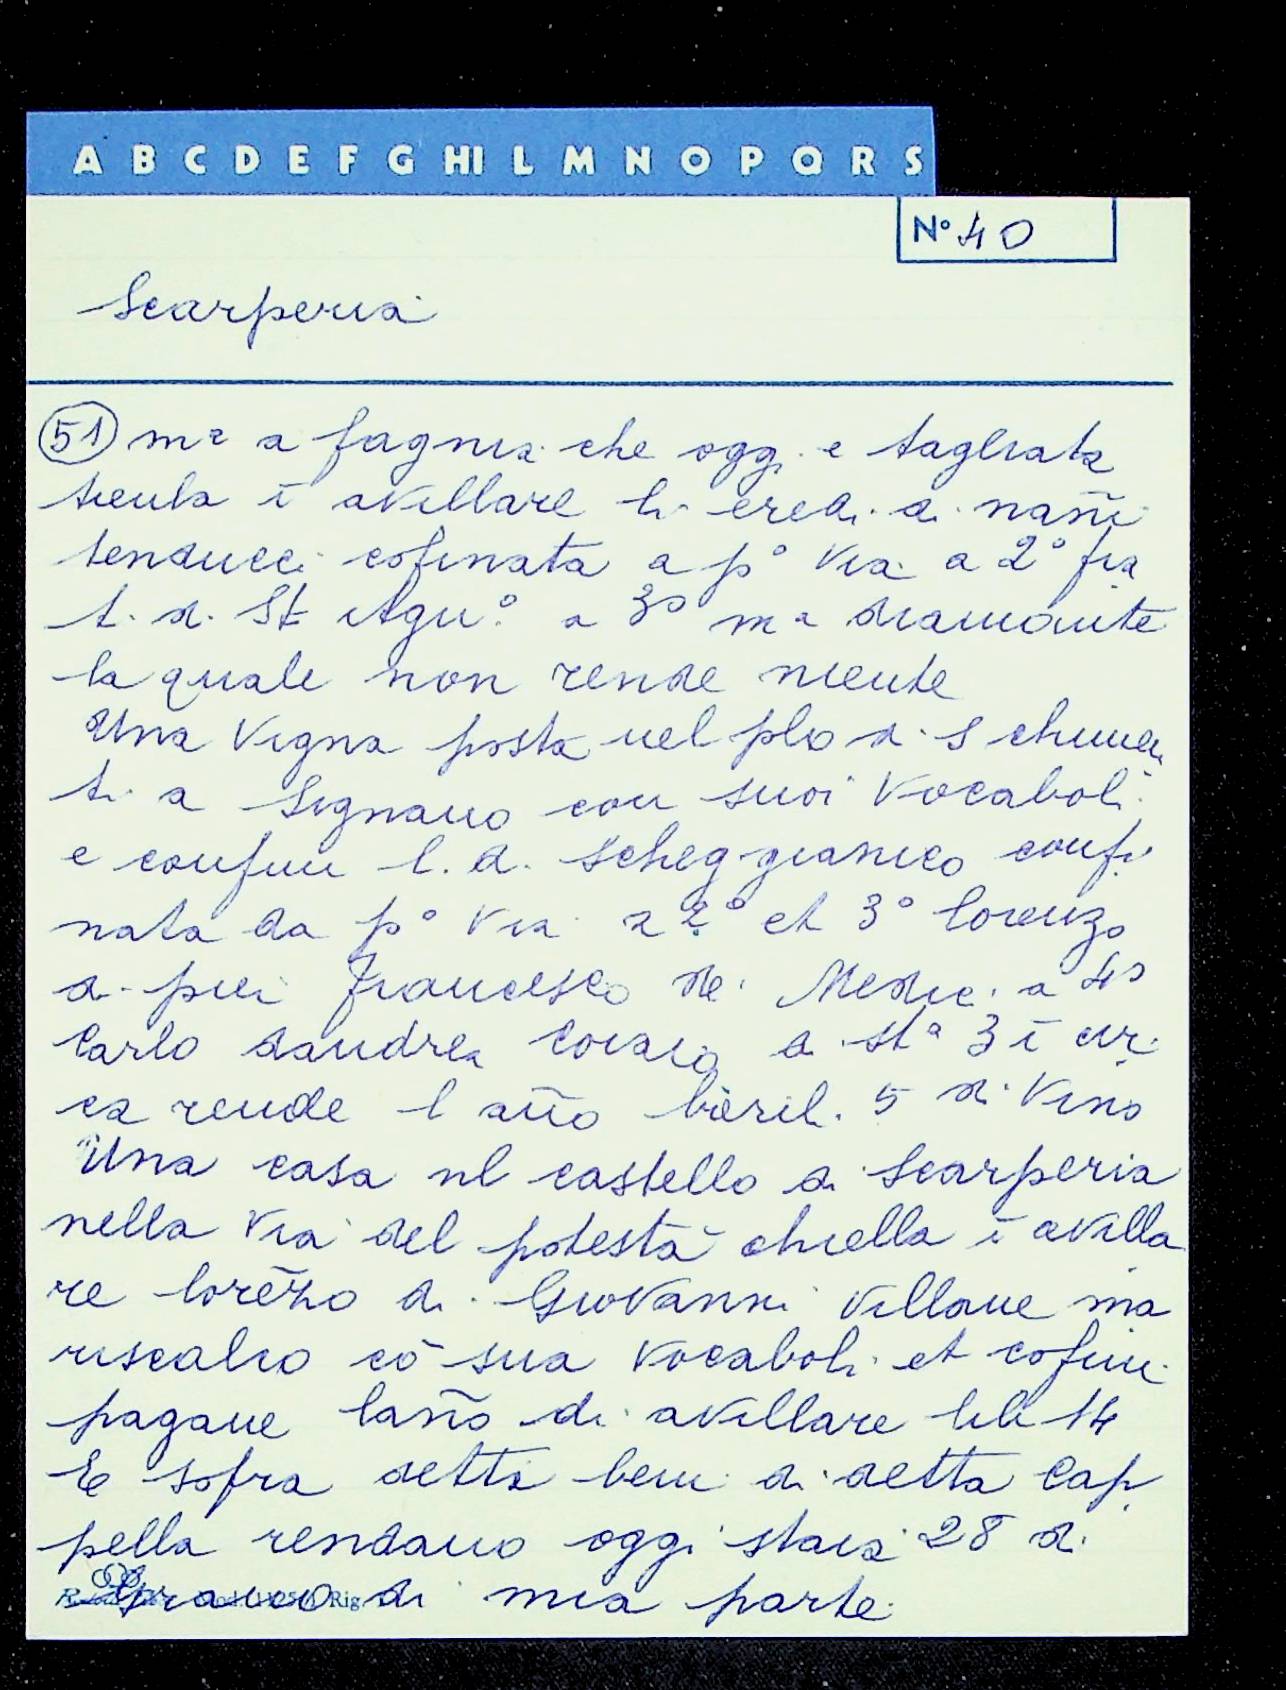 A B C D E F G HI L M N O P Q R S
N° 40
Scarperia
51 mª a fagnia che oggi e tagliata
tienla ī avillare li eredi di nañi
tenducci cofinata a p° Via a 2° fra
t. d. St Agn.° a 3° mª diamonte
la quale non rende niente
Una Vigna posta nel plo di S chimen
ti a Signano con suoi Vocaboli
e confini l. d. scheggianico confi
nata da p° Via a 2° et 3° lorenzo
di pier francesco de Medici a 4°
Carlo dandrea a stª 3 ī cir
ca rende l año bàrili 5 di Vino
Una casa nl castello di Scarperia
nella Via del potestà chiella ī avilla
re lorēzo di Giovanni Villane ma
riscalco cō sua Vocaboli et cofini
pagane laño di avillare lili 14
E sofra detti beni di detta Cap
pella rendano oggi staia 28 di
grano di mia parte